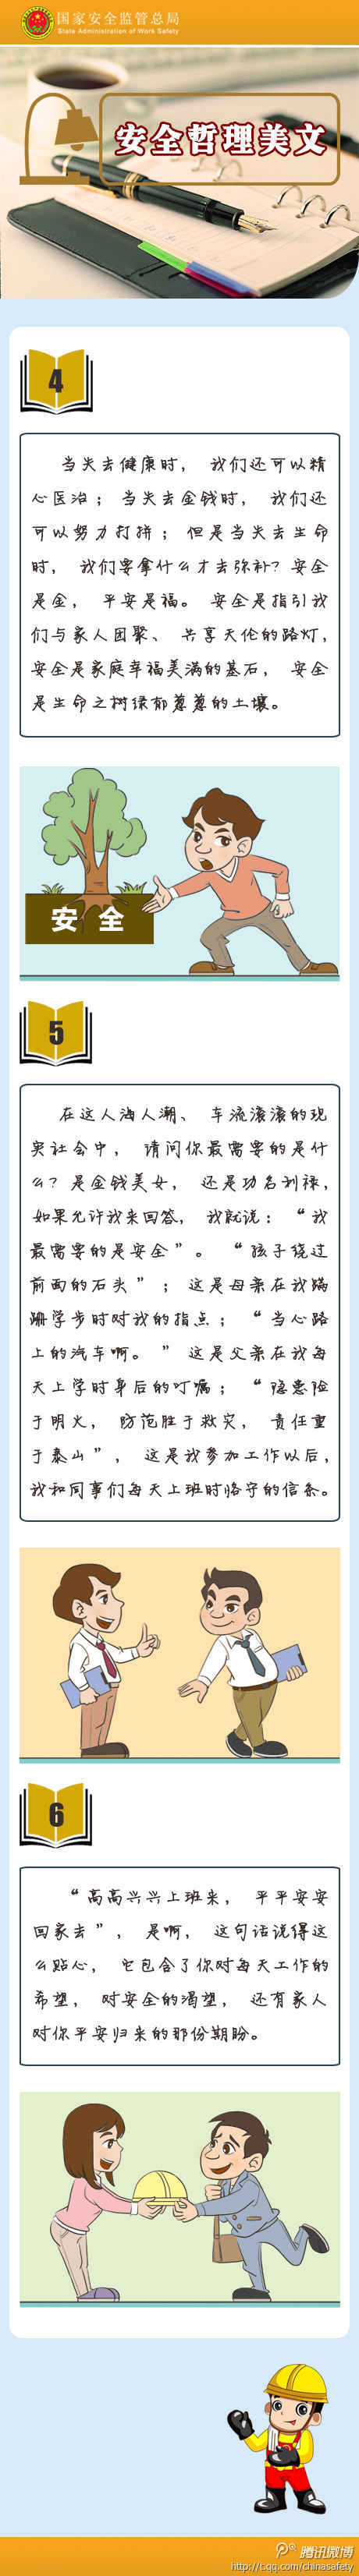 国家安全监管总局
State Administration of Work Safety
安全哲理美文
4
当失去健康时， 我们还可以精
心医治； 当失去金钱时， 我们还
可以努力打拼； 但是当失去生命
时， 我们要拿什么才去弥补？安全
是金， 平安是福。 安全是指引我
们与家人团聚、 共享天伦的路灯，
安全是家庭幸福美满的基石， 安全
是生命之树绿郁葱葱的土壤。
安 全
5
在这人海人潮、 车流滚滚的现
实社会中， 请问你最需要的是什
么？是金钱美女， 还是功名利禄，
如果允许我来回答， 我就说：“我
最需要的是安全”。 “孩子绕过
前面的石头”； 这是母亲在我蹒
跚学步时对我的指点；“当心路
上的汽车啊。” 这是父亲在我每
天上学时身后的叮嘱；“隐患险
于明火， 防范胜于救灾， 责任重
于泰山”， 这是我参加工作以后，
我和同事们每天上班时恪守的信条。
6
“高高兴兴上班来， 平平安安
回家去”， 是啊， 这句话说得这
么贴心， 它包含了你对每天工作的
希望， 对安全的渴望， 还有家人
对你平安归来的那份期盼。
腾讯微博
http://t.qq.com/chinasafety